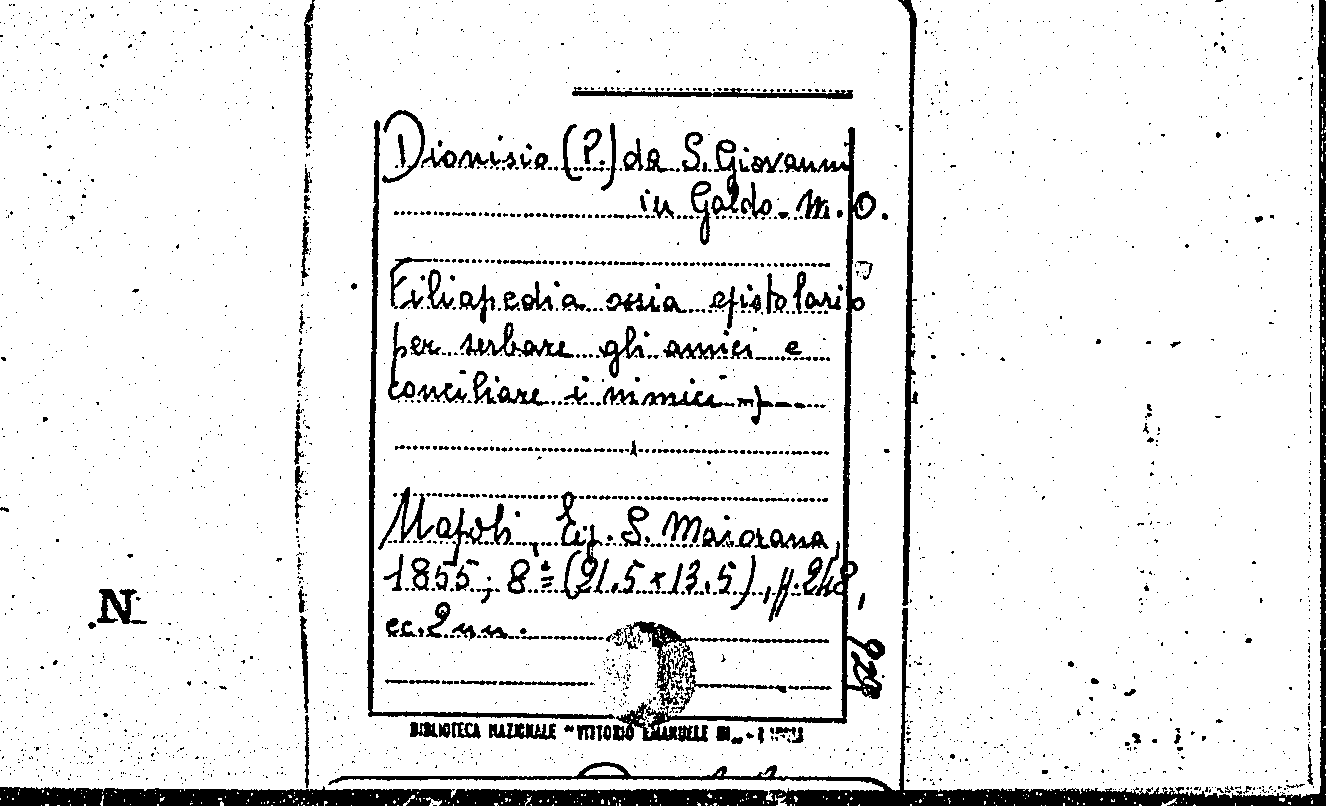 Dionisio (P.) da S. Giovanni
in Galdo. M. O.
Filiapedia ossia epistolario
per serbare gli amici e
conciliare i nimici
Napoli, Tip. S. Maiorana,
1855; 8º (21.5 x 13.5), p. 248,
cc. 2 nn.
N
BIBLIOTECA NAZIONALE "VITTORIO EMANUELE III" -